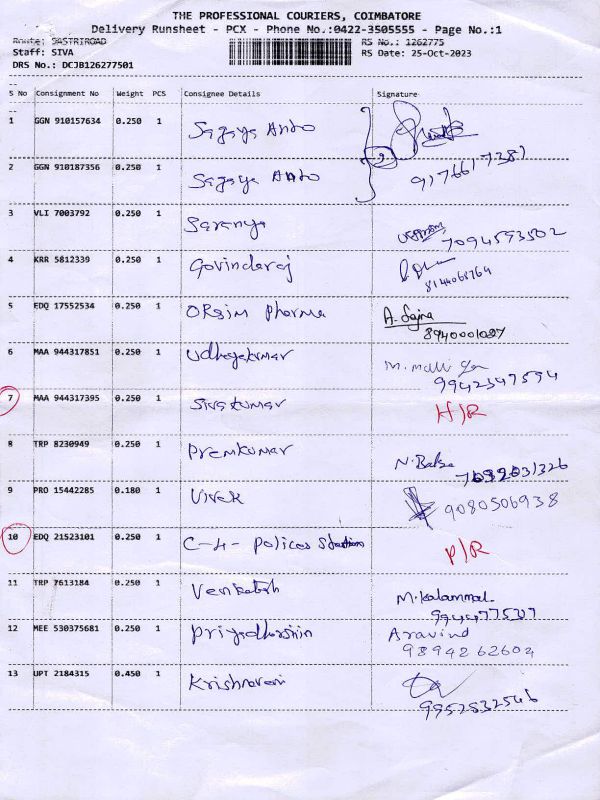 THE PROFESSIONAL COURIERS, COIMBATORE
Delivery Runsheet - PCX - Phone No.:0422-3505555 - Page No.:1
Route: SASTRIROAD RS No.: 1262775
Staff: SIVA RS Date: 25-Oct-2023
DRS No.: DCJB126277501
S No Consignment No Weight PCS Consignee Details Signature
1 GGN 910157634 0.250 1 Sagaya Anto
2 GGN 910187356 0.250 1 Sagaya Anto 9176617381
3 VLI 7003792 0.250 1 Saranya 7094593502
4 KRR 5812339 0.250 1 Govindaraj
5 EDQ 17552534 0.250 1 ORsim Pharma A. Sajna
6 MAA 944317851 0.250 1 Udhayakumar
9942347594
7 MAA 944317395 0.250 1 Sivakumar H/R
8 TRP 8230949 0.250 1 Premkumar
9 PRO 15442285 0.180 1 Vivek 9080506938
10 EDQ 21523101 0.250 1 C-4- Polices Station P/R
11 TRP 7613184 0.250 1 Venkatesh M. Kalammal
12 MEE 530375681 0.250 1 Priyadharshin Aravind
9894262604
13 UPT 2184315 0.450 1 Krishnaveni
9952832546